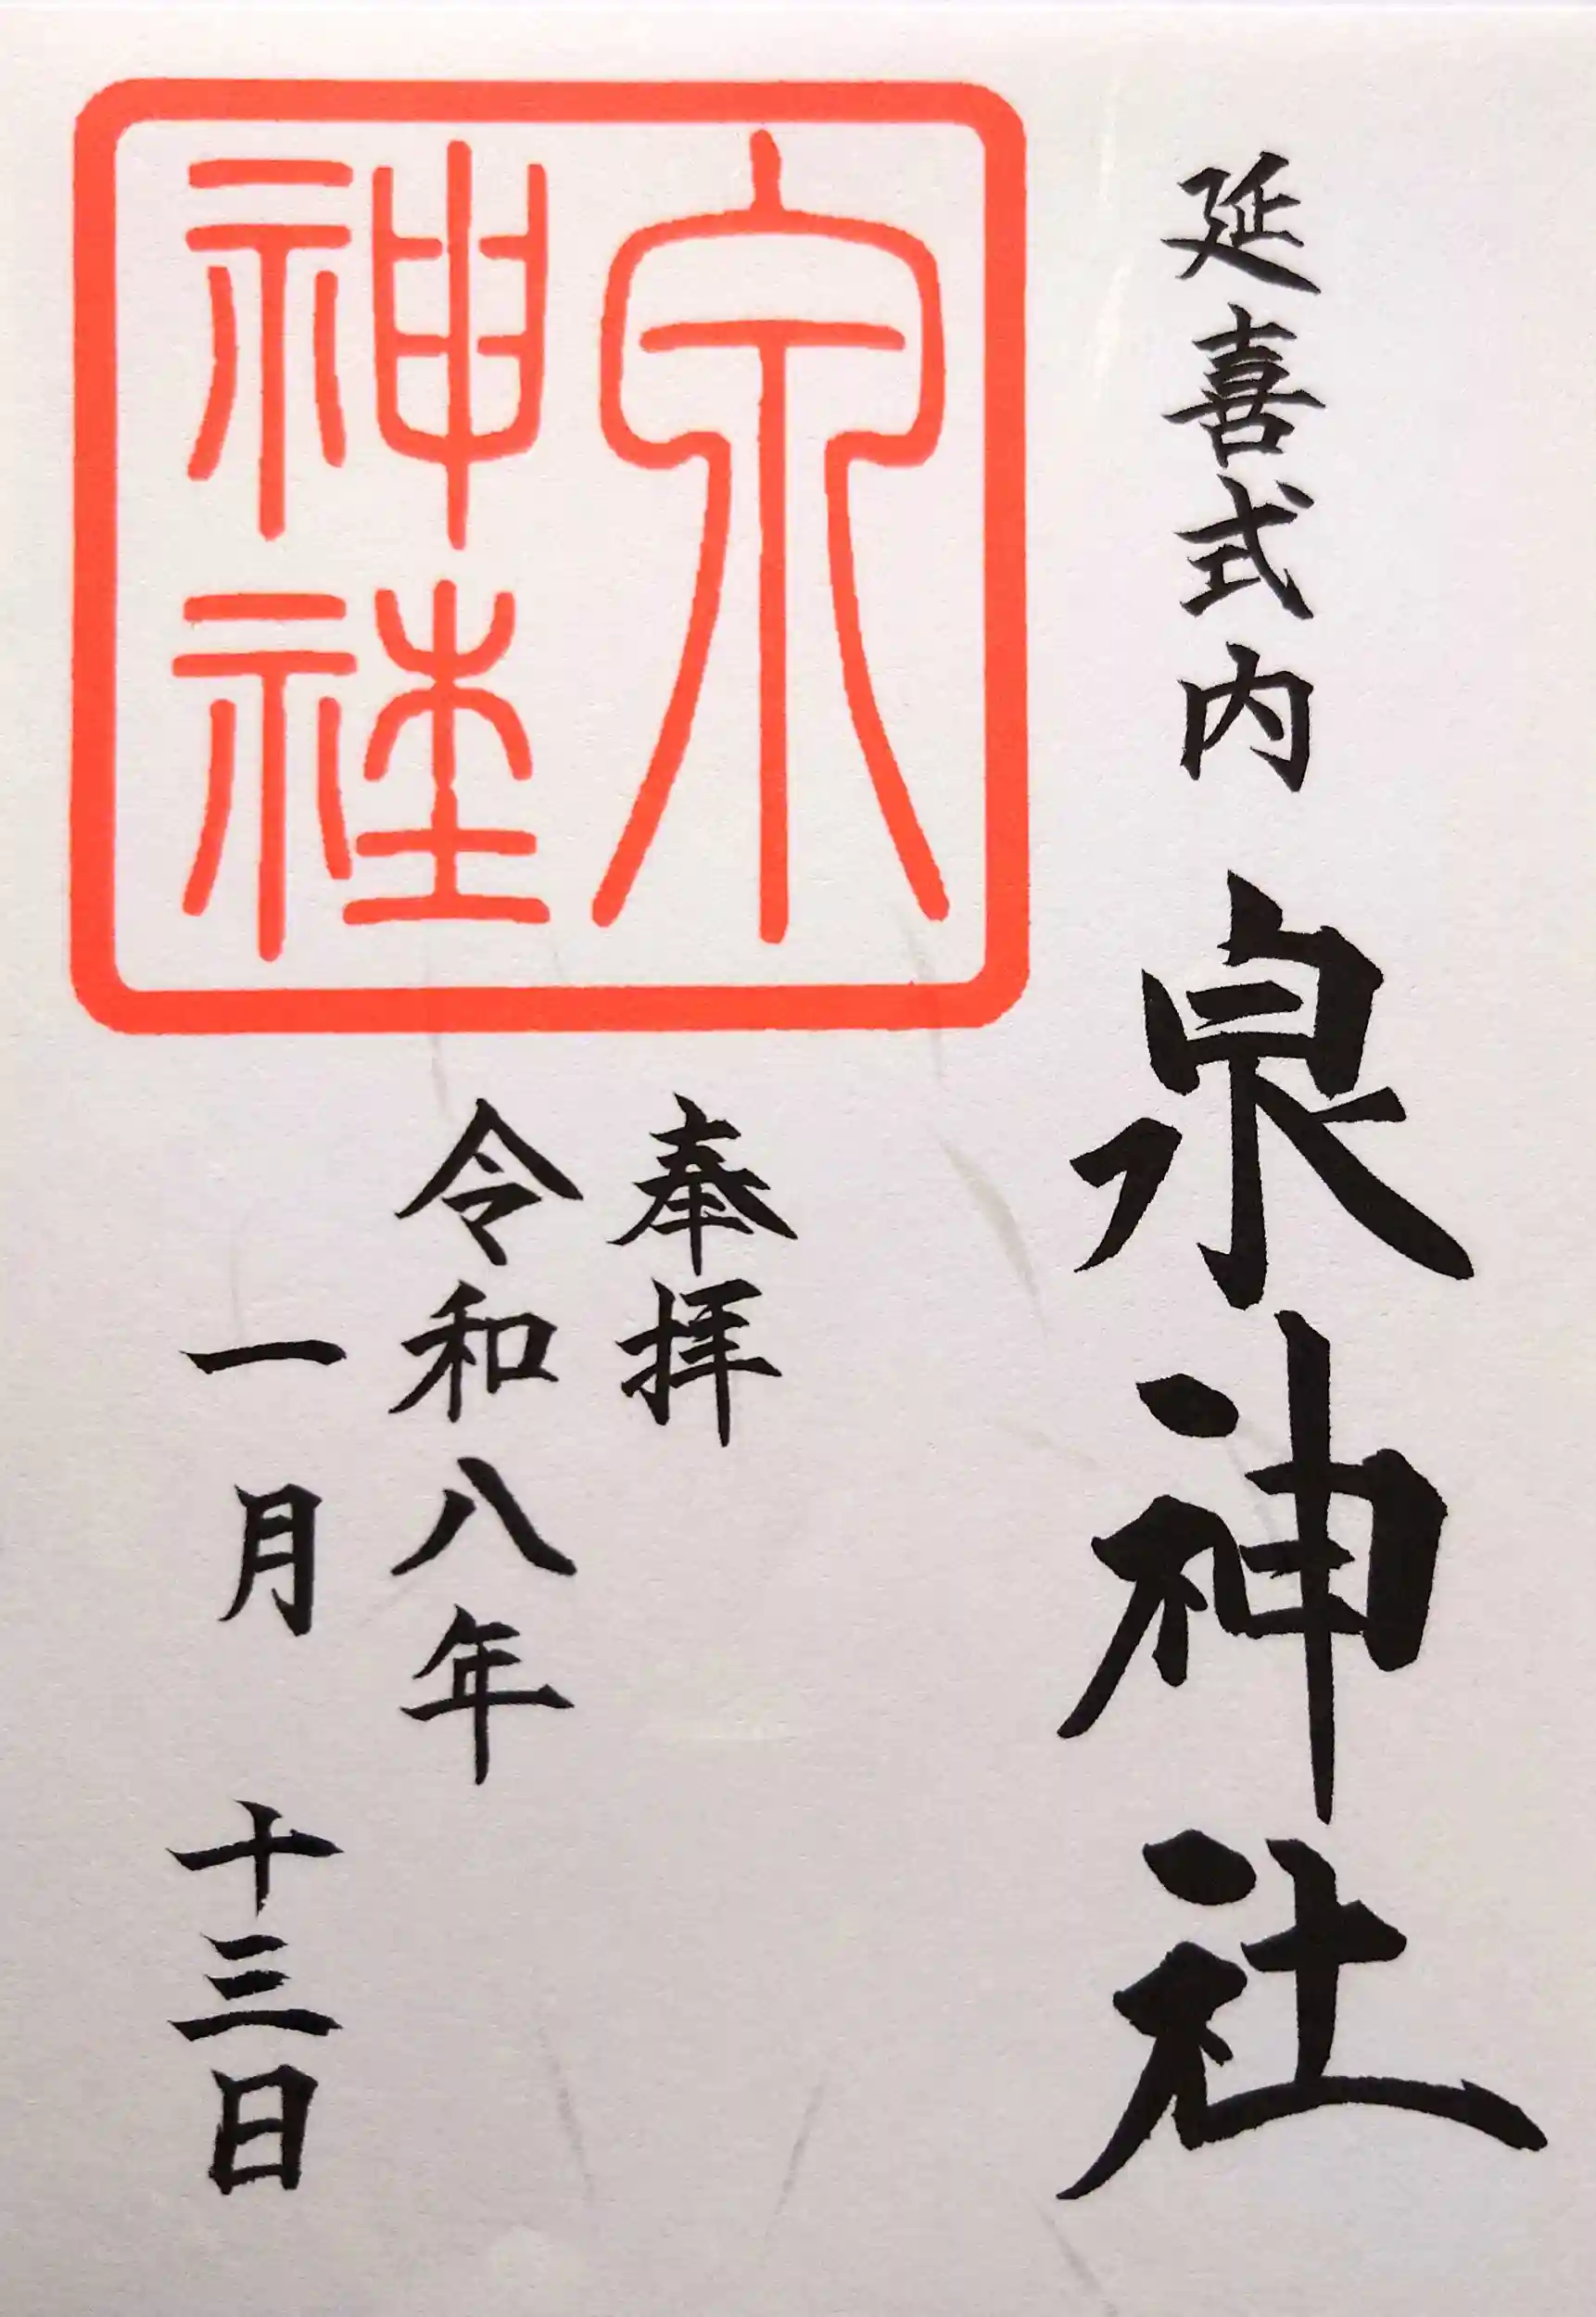 延喜式内 泉神社
奉拝
令和八年
一月 十三日
泉
神社